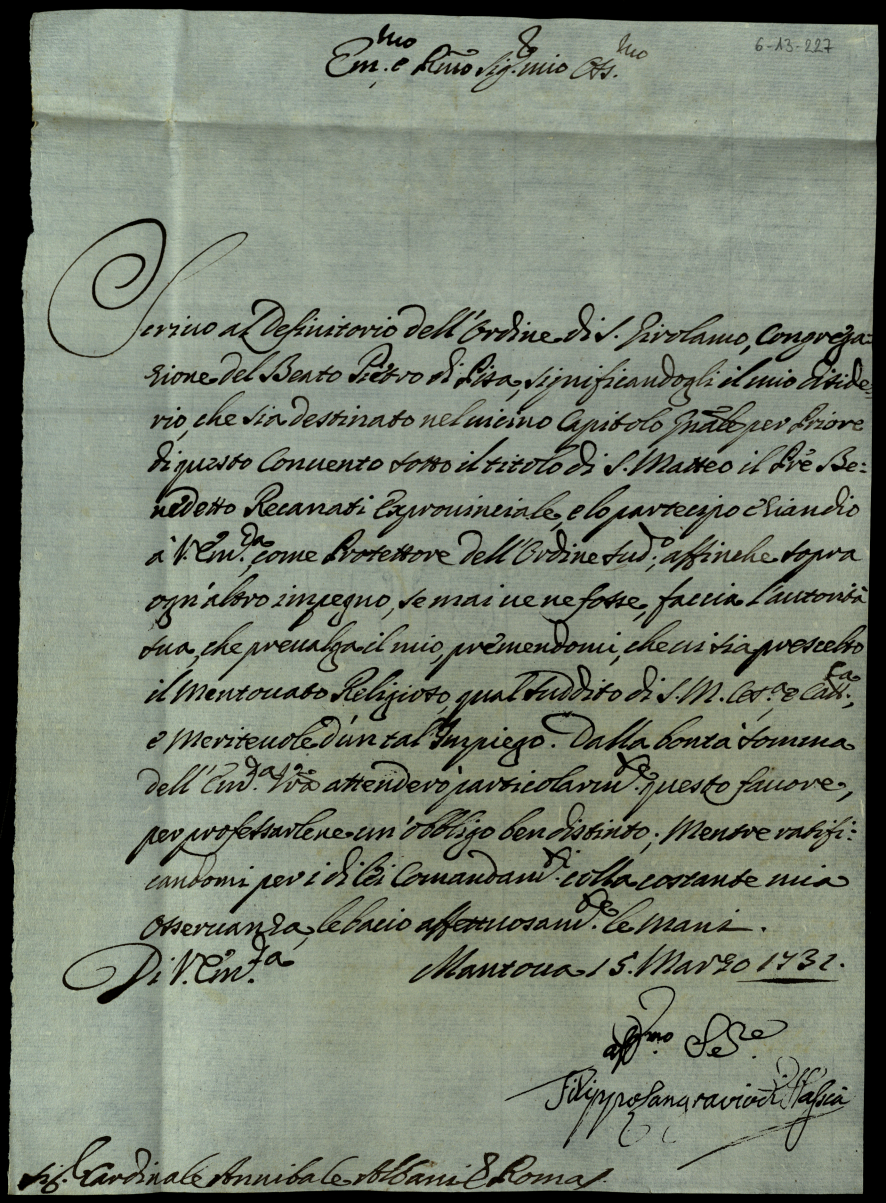 6-13-227
Em.mo e Rmo Sig.r mio Oss.mo
Scrivo al Definitorio dell'Ordine di S. Girolamo, Congrega:
zione del Beato Pietro di Pisa, significandogli il mio diside:
rio, che sia destinato nel vicino Capitolo Gnãle per Priore
di questo Convento sotto il titolo di S. Matteo il Prẽ Be:
nedetto Recanati Exprovinciale, e lo partecipo eziandio
à V. Em.za come Protettore dell'Ordine sud.o, affinche sopra
ogn'altro impegno, se mai ve ne fosse, faccia l'autorità
sua, che prevalga il mio, premendomi, che vi sia prescelto
il mentovato Religioso, qual Suddito di S. M. Ces.a e Catt.ca,
e Meritevole d'un tal Impiego. Dalla bontà somma
dell'Em.za Vrã attenderò particolarm.te questo favore,
per professarlene un'obbligo ben distinto; Mentre ratifi:
candomi per i di lei Comandam.ti colla costante mia
osservanza, le bacio affettuosam.te le mani.
Di V. Em.za Mantova 15. Marzo 1732.
aff.mo Se.re
Filippo Langravio d'Hassia
Sig.r Cardinale Annibale Albani Roma